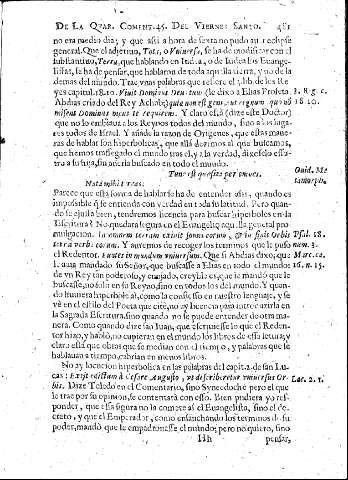 DE LA QVAR. COMENT. 45. DEL VIERNES SANTO. 481
no era medio dia; y que assi a hora de sexta no pudo auer eclypse
general. Que el adjetiuo, Toto, o Vniuerso, se ha de modificar con el
substantiuo, Terra, que hablando en Iudea, o de Iudea los Euange-
listas, se ha de pensar, que hablaron de toda aquella tierra, y no de la
demas del mundo. Trae vnas palabras que refiere el 3. lib. de los Re
yes capitul. 18. 10. Viuit Dominus Deus tuus (le dixo a Elias Profeta
Abdias criado del Rey Achab) quia non est gens, aut regnum quo nō
miserit Dominus meus te requirens. Y claro està (dize este Doctor)
que no lo embiaste a los Reynos todos del mundo, sino a los luga-
res todos de Israel. Y añade la razon de Origenes, que estas mane-
ras de hablar son hiperbolicas, que allà dezimos al que buscamos,
que hemos trasegado el mundo tras el, y a la verdad, dize
tra a su hija, sin auerla buscado en todo el mundo.
3. Reg. c.
18. 10.
Tu non es quæsita per omnes
Nata mihi terras.
Ouid. Me
tamorph.
Parece que esta forma de hablar se ha de entender assi, quando es
impossible q̃ se entienda con verdad en toda su latitud. Pero quan-
do se ajusta bien, tendremos licencia para buscar hiperboles en la
Escritura? No quedara segura en el Euangelio aquella general pro-
mulgacion. In omnem terram exiuit sonus eorum, & in fines Orbis
terræ verba eorum. Y auremos de recoger los terminos que le puso
el Redentor. Euntes in mundum vniuersum. Que si Abdias dixo; que
auia mandado su Señor, que buscasse a Elias en todo el mundo;
de vn Rey tan poderoso, y enojado, creible es, que le mandò que le
buscasse, no solo en su Reyno, sino en todos los del mundo. Y quan-
do huuiera hiperbole aì, como la confiesso en nuestro lenguaje, y se
vè en el estilo del Poeta que citè, no ay licencia para introducirla en
la Sagrada Escritura, sino quando no se puede entender de otra ma
nera. Como quando dize san Iuan, que si escriuiesse lo que el Reden-
tor hizo, y hablò, no cupieran en el mundo los libros de essa letura, y
claro està que obras que se median con el tiempo, y palabras que le
hablauan a tiempo, cabrian en menos libros.
Psal. 18.
num. 3.
Marc. ca.
16. n. 15.
No ay locucion hiperbolica en las palabras del capit. 2. de san Lu-
cas: Exijt edictum à Cesare Augusto, vt describeretur vniuersus Or-
bis. Dize Toledo en el Comentario, sino Synecdoche pero el que
le trae por su opinion, se contentarà con esso. Bien pudiera yo res-
ponder, que essa figura no la comete aì el Euangelista, sino el de-
creto, y que el Emperador, como ensanchando los terminos de su
poder, mandò que le empadronasse el mundo; pero no quiero, sino
Luc. 2. 1.
Hh
pensar,